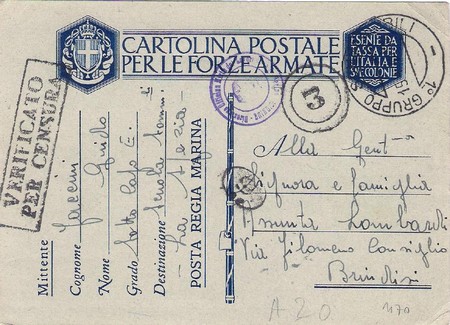 CARTOLINA POSTALE
PER LE FORZE ARMATE
ESENTE DA
TASSA PER
L'ITALIA E
SUE COLONIE
VERIFICATO
PER CENSURA
1° GRUPPO
B
Mittente
Cognome
Nome Guido
Grado Sotto Capo
Destinazione Scuola
La Spezia
POSTA REGIA MARINA
Alla Gent
Signora e famiglia
Assunta Lombardi
Via Filomeno Consiglio
Brindisi
A 20
1170